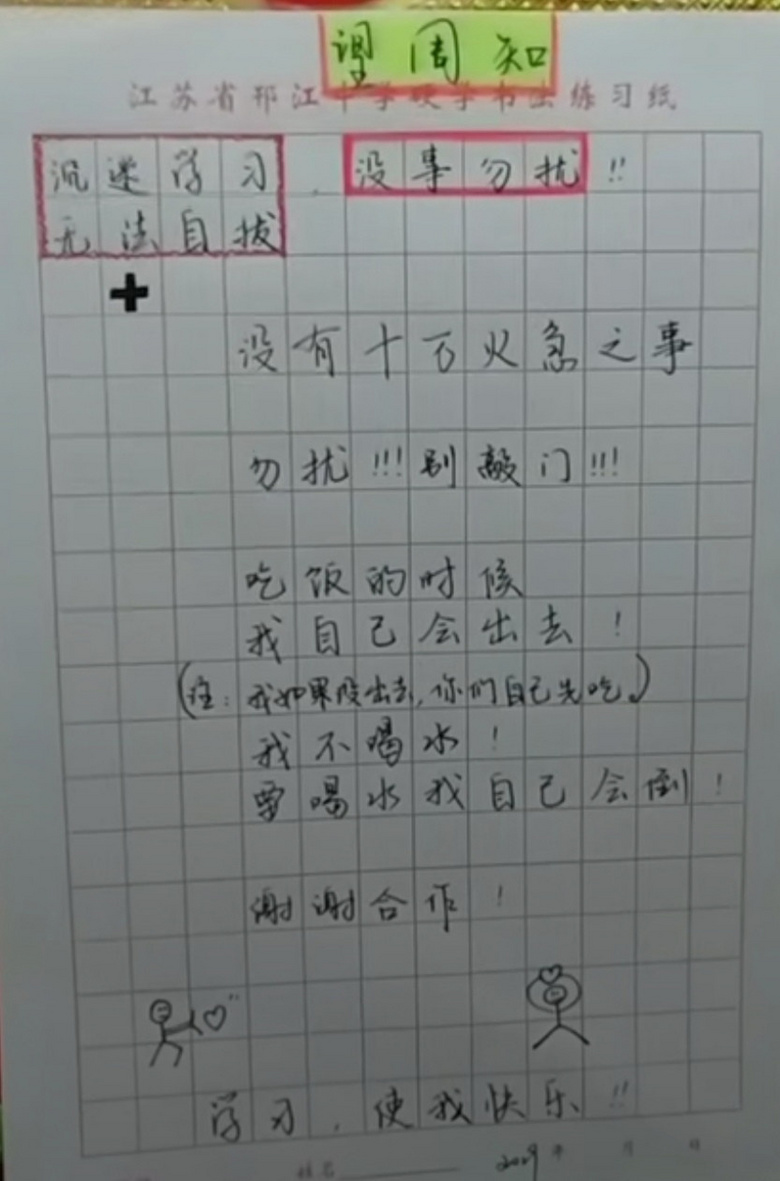 望周知
江苏省邗江中学硬字书法练习纸
沉迷学习,没事勿扰!!
无法自拔
+
没有十万火急之事
勿扰!!!别敲门!!!
吃饭的时候
我自己会出去!
(注:我如果没出去,你们自己先吃。)
我不喝水!
要喝水我自己会倒!
谢谢合作!
学习,使我快乐!!
姓名 年 月 日